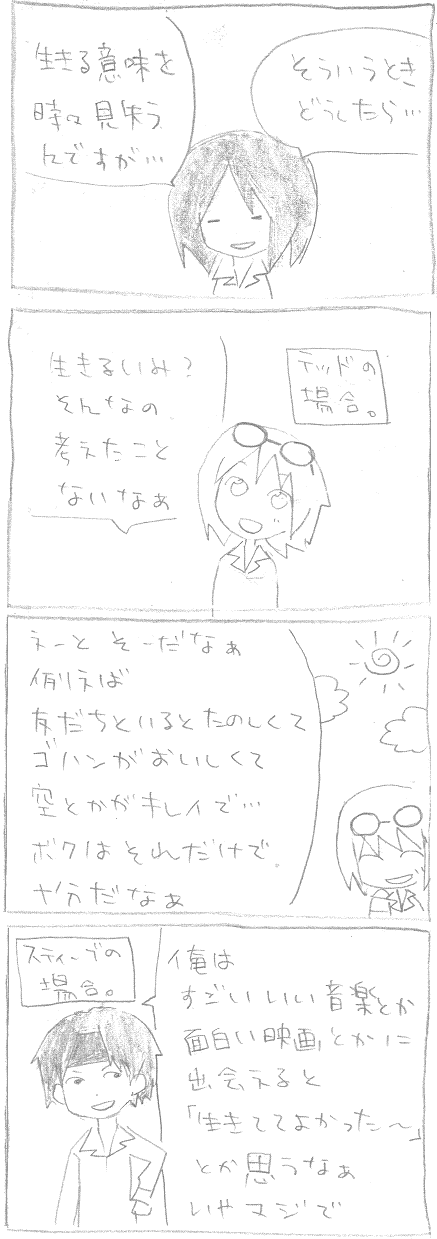 そういうとき
どうしたら…
生きる意味を
時々見失う
んですが…
テッドの
場合。
生きるいみ？
そんなの
考えたこと
ないなぁ
えーと そーだなぁ
例えば
友だちといるとたのしくて
ゴハンがおいしくて
空とかがキレイで…
ボクはそれだけで
十分だなぁ
スティーブの
場合。
俺は
すごいいい音楽とか
面白い映画とかに
出会えると
「生きててよかった〜」
とか思うなぁ
いやマジで